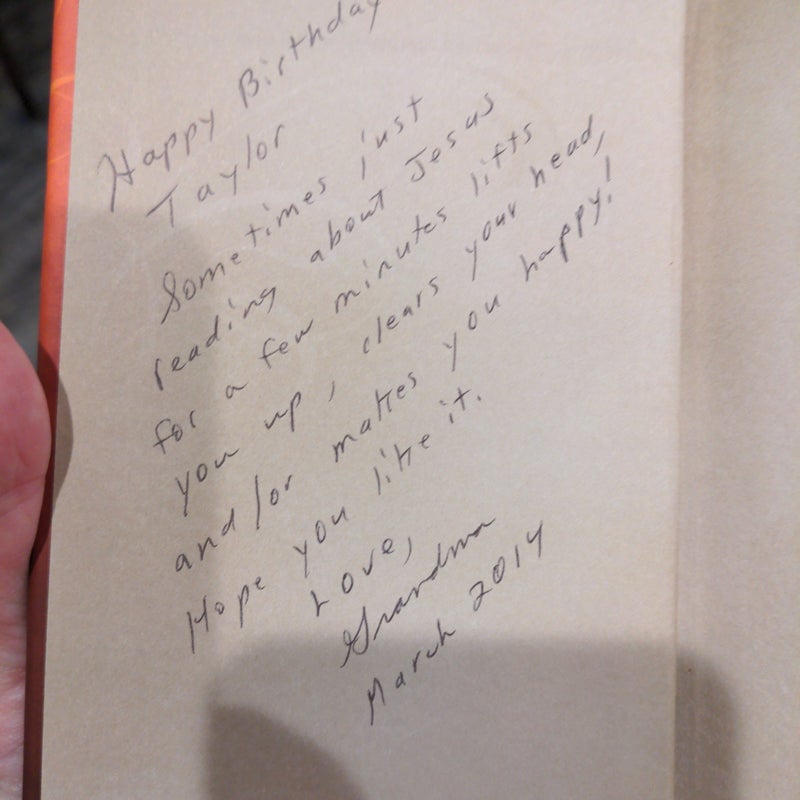 Happy Birthday
Taylor
Sometimes just
reading about Jesus
for a few minutes lifts
you up, clears your head,
and/or makes you happy!
Hope you like it.
Love,
Grandma
March 2014